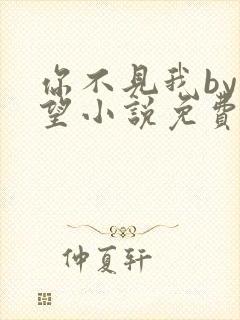 你不见我by
望小说免费
仲夏轩